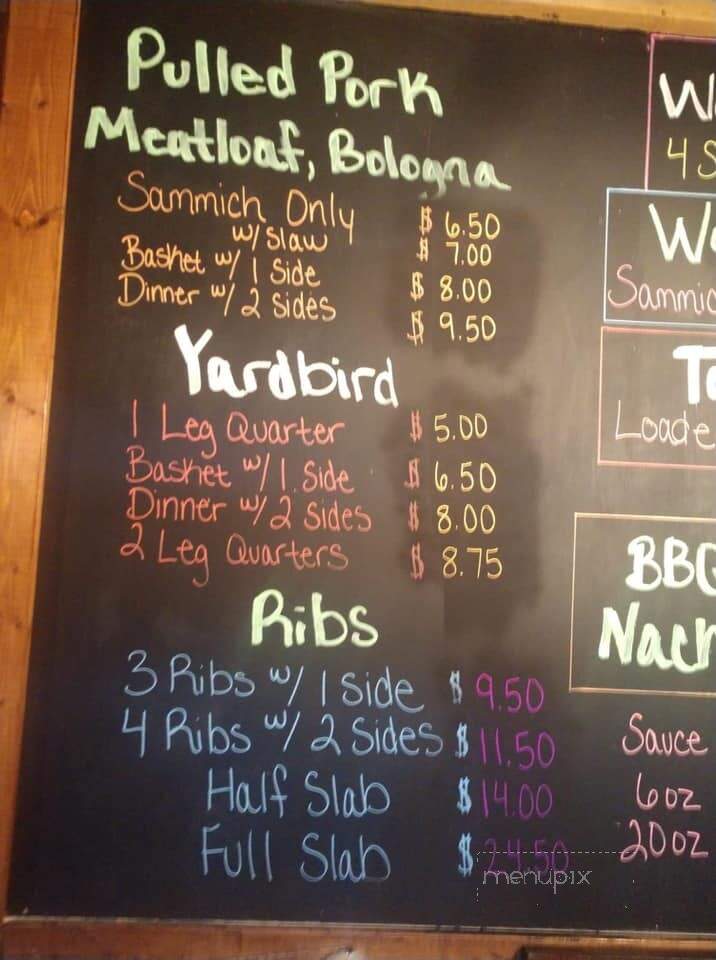 Pulled Pork
Meatloaf, Bologna
Sammich Only $ 6.50
w/ Slaw $ 7.00
Basket w/ 1 Side $ 8.00
Dinner w/ 2 Sides $ 9.50
Yardbird
1 Leg Quarter $ 5.00
Basket w/ 1 Side $ 6.50
Dinner w/ 2 Sides $ 8.00
2 Leg Quarters $ 8.75
Ribs
3 Ribs w/ 1 Side $ 9.50
4 Ribs w/ 2 Sides $ 11.50
Half Slab $ 14.00
Full Slab $ 24.50
menupix
W
4 S
W
Sammic
T
Loade
BBQ
Nach
Sauce
6oz
20oz